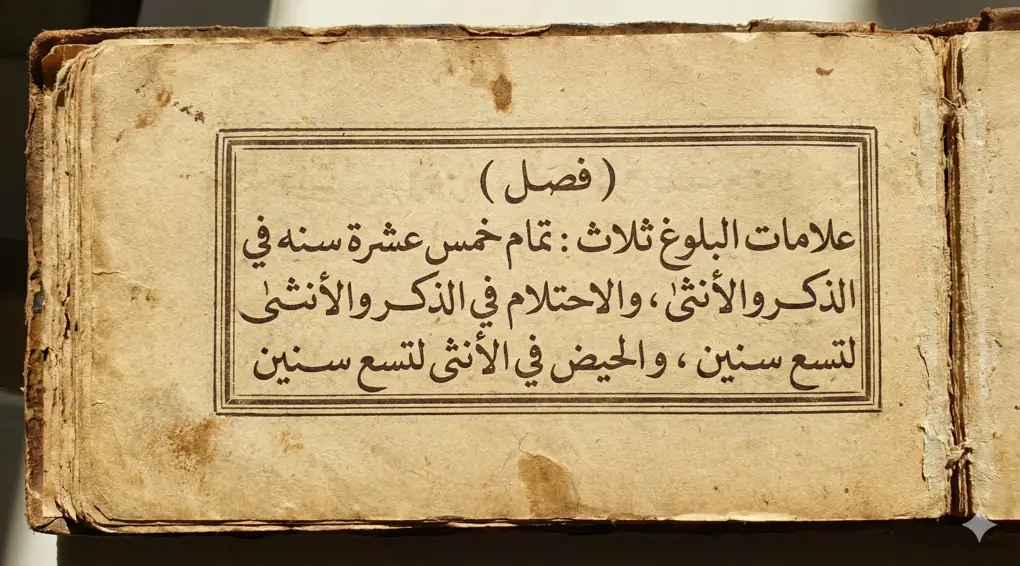 ( فصل )
علامات البلوغ ثلاث : تمام خمس عشرة سنه في
الذكر والأنثى ، والاحتلام في الذكر والأنثى
لتسع سنين ، والحيض في الأنثى لتسع سنين